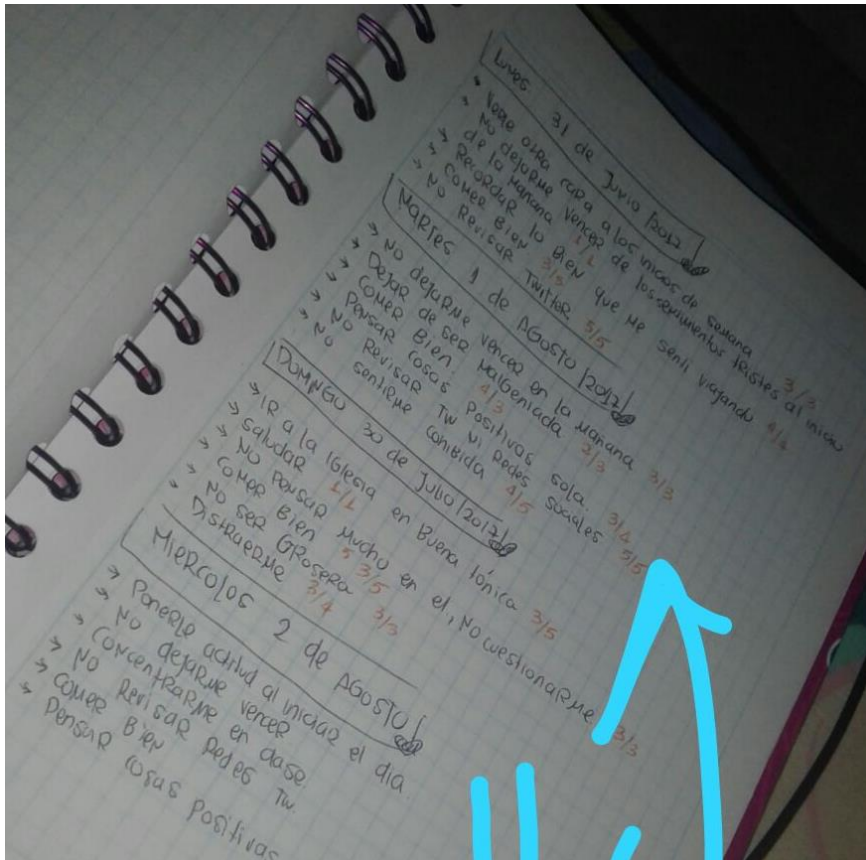 Lunes 31 de Julio /2017
Verle otra cara a los inicios de semana 3/3
No dejarme vencer de los sentimientos tristes al inicio
de la mañana 1/1
Recordar lo bien que me sentí viajando 4/4
Comer bien 3/5
No revisar Twitter 5/5
Martes 1 de Agosto /2017
No dejarme vencer en la mañana 3/3
Dejar de ser malgeniada 2/3
Comer bien. 4/3
Pensar cosas positivas sola. 3/4
No revisar Tw ni redes sociales 5/5
No sentirme cohibida 4/5
Domingo 30 de Julio /2017
Ir a la Iglesia en buena tónica 3/5
Saludar 1/1
No pensar mucho en el, no cuestionarme 3/3
Comer bien 5 3/5
No ser grosera 3/3
Distraerme 3/4
Miercoles 2 de Agosto
Ponerle actitud al iniciar el dia.
No dejarme vencer
Concentrarme en clase.
No revisar Redes Tw.
Comer bien
Pensar cosas positivas